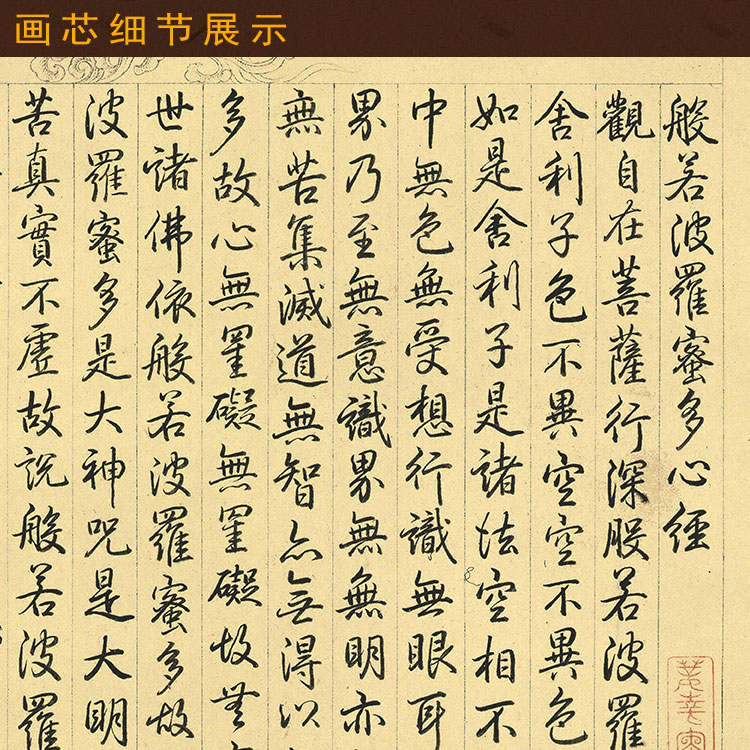 画芯细节展示
般若波羅蜜多心經
觀自在菩薩行深般若波羅
舍利子色不異空空不異色
如是舍利子是諸法空相不
中無色無受想行識無眼耳
界乃至無意識界無無明亦
無苦集滅道無智亦無得以
多故心無罣礙無罣礙故無
世諸佛依般若波羅蜜多故
波羅蜜多是大神咒是大明
苦真實不虛故説般若波羅